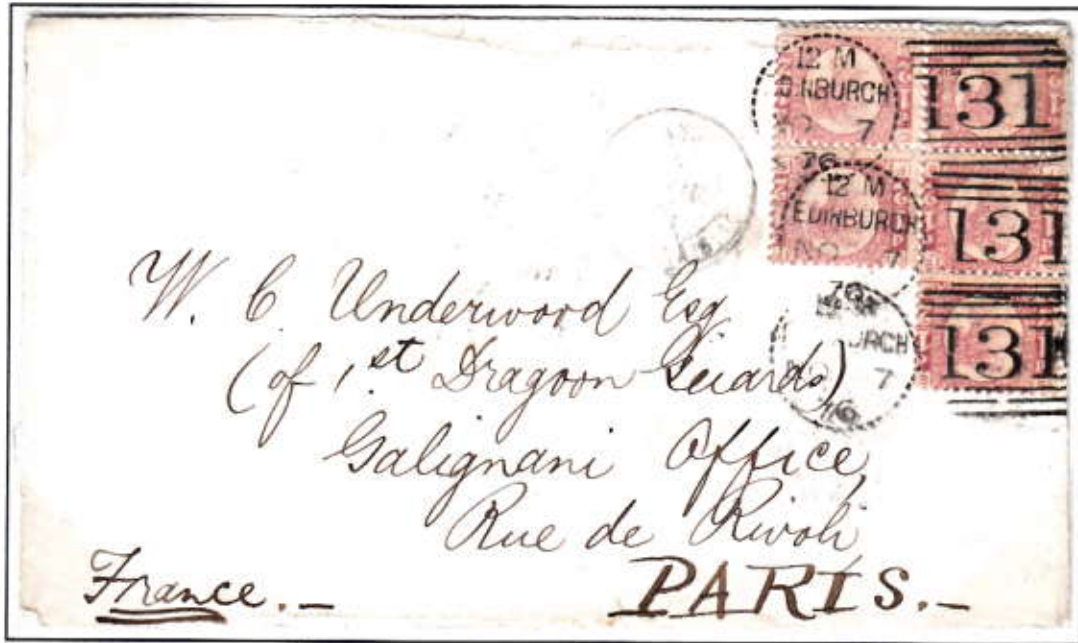 12 M
EDINBURGH
7
76
131
12 M
EDINBURGH
NO 7
76
131
7
76
131
W. C. Underwood Esq
(of 1st Dragoon Guards)
Galignani Office,
Rue de Rivoli,
France. –
PARIS. –